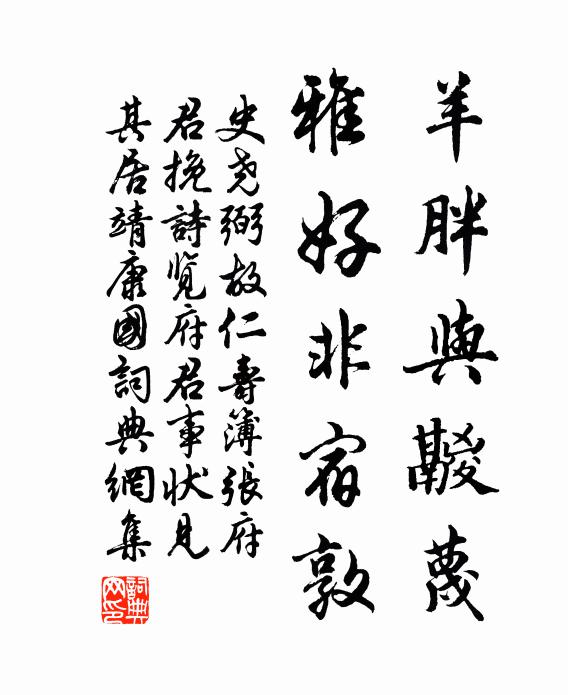 羊胖與鬷蔑
雅好非宿敦
史尧弼故仁壽簿張府
君挽詩览府君事狀見
其居靖康國詞典網集
詞典网印